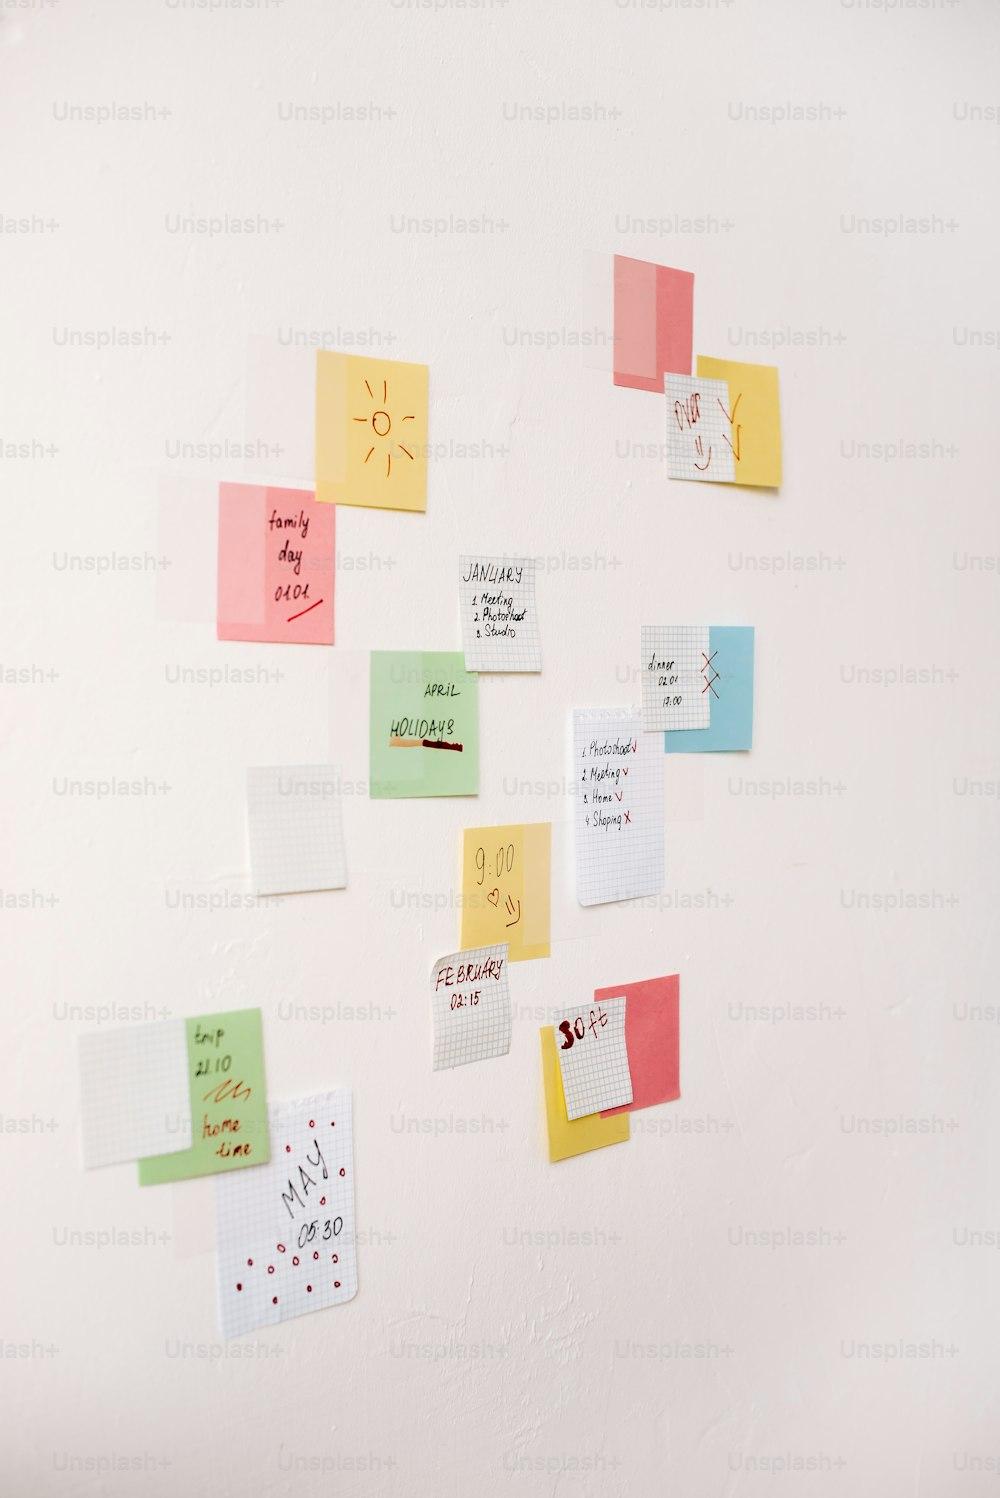 over
family
day
01.01.
JANUARY
1. Meeting
2. Photoshoot
3. Studio
dinner
02.01
17:00
APRIL
HOLIDAYS
1. Photoshoot✓
2. Meeting ✓
3. Home ✓
4. Shoping x
9:00
FEBRUARY
02:15
soft
trip
21.10
home
time
MAY
05:30
Unsplash+